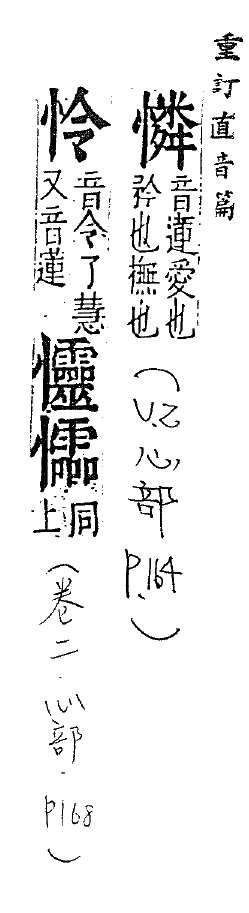 重訂直音篇
憐 音蓮愛也
矜也撫也
(V.乙 心部 P.164)
怜 音令了慧
又音蓮
㦭 同
上
(卷二.心部.P168)